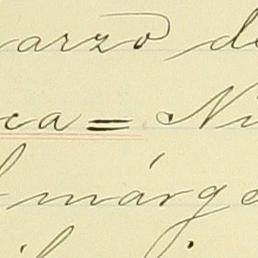 arzo de
ca = Ni
márge